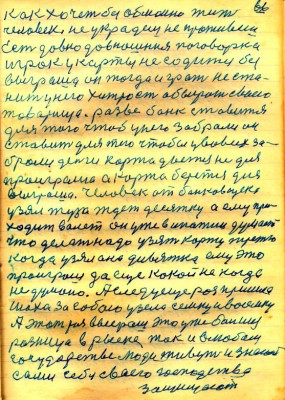 66
как хочет бы обмоино жить
человек. не украдеш не проживеш
Есть давно довношния поговорка
игрок у карты не садится бы
выграша он тогда и грать не ста-
нит у него хитрость обыграть своего
товарища. разве банк ставится
для того чтоб у него забрали он
ставит для того чтобы у вовсех за-
брали деньги карта дается не для
проиграша а карта берется для
выграша. Человек от банковщика
узял туза ждет десятку а ему при-
ходит валет он уже в
что делать надо узять карту третю
когда узял она девятка ему это
проиграш да еще какой не когда
не думано. А следущея роз пришла
за собою узела семку и восемку
А этот уж выграш это уже большая
разница в так и в нобом
государстве люди живуть и знают
сами себе своего господства
защищают